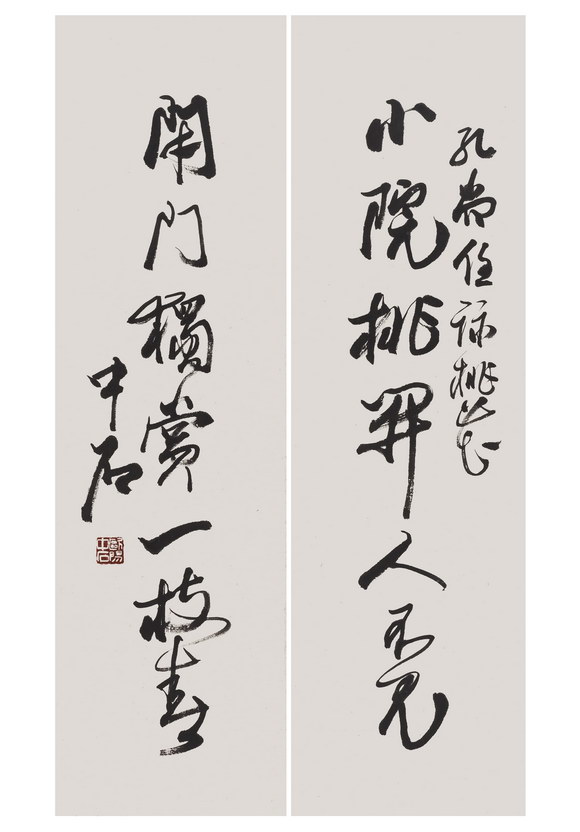 孔尚任詠桃花
小院桃開人不見
閉門獨賞一枝春
中石
歐陽中石